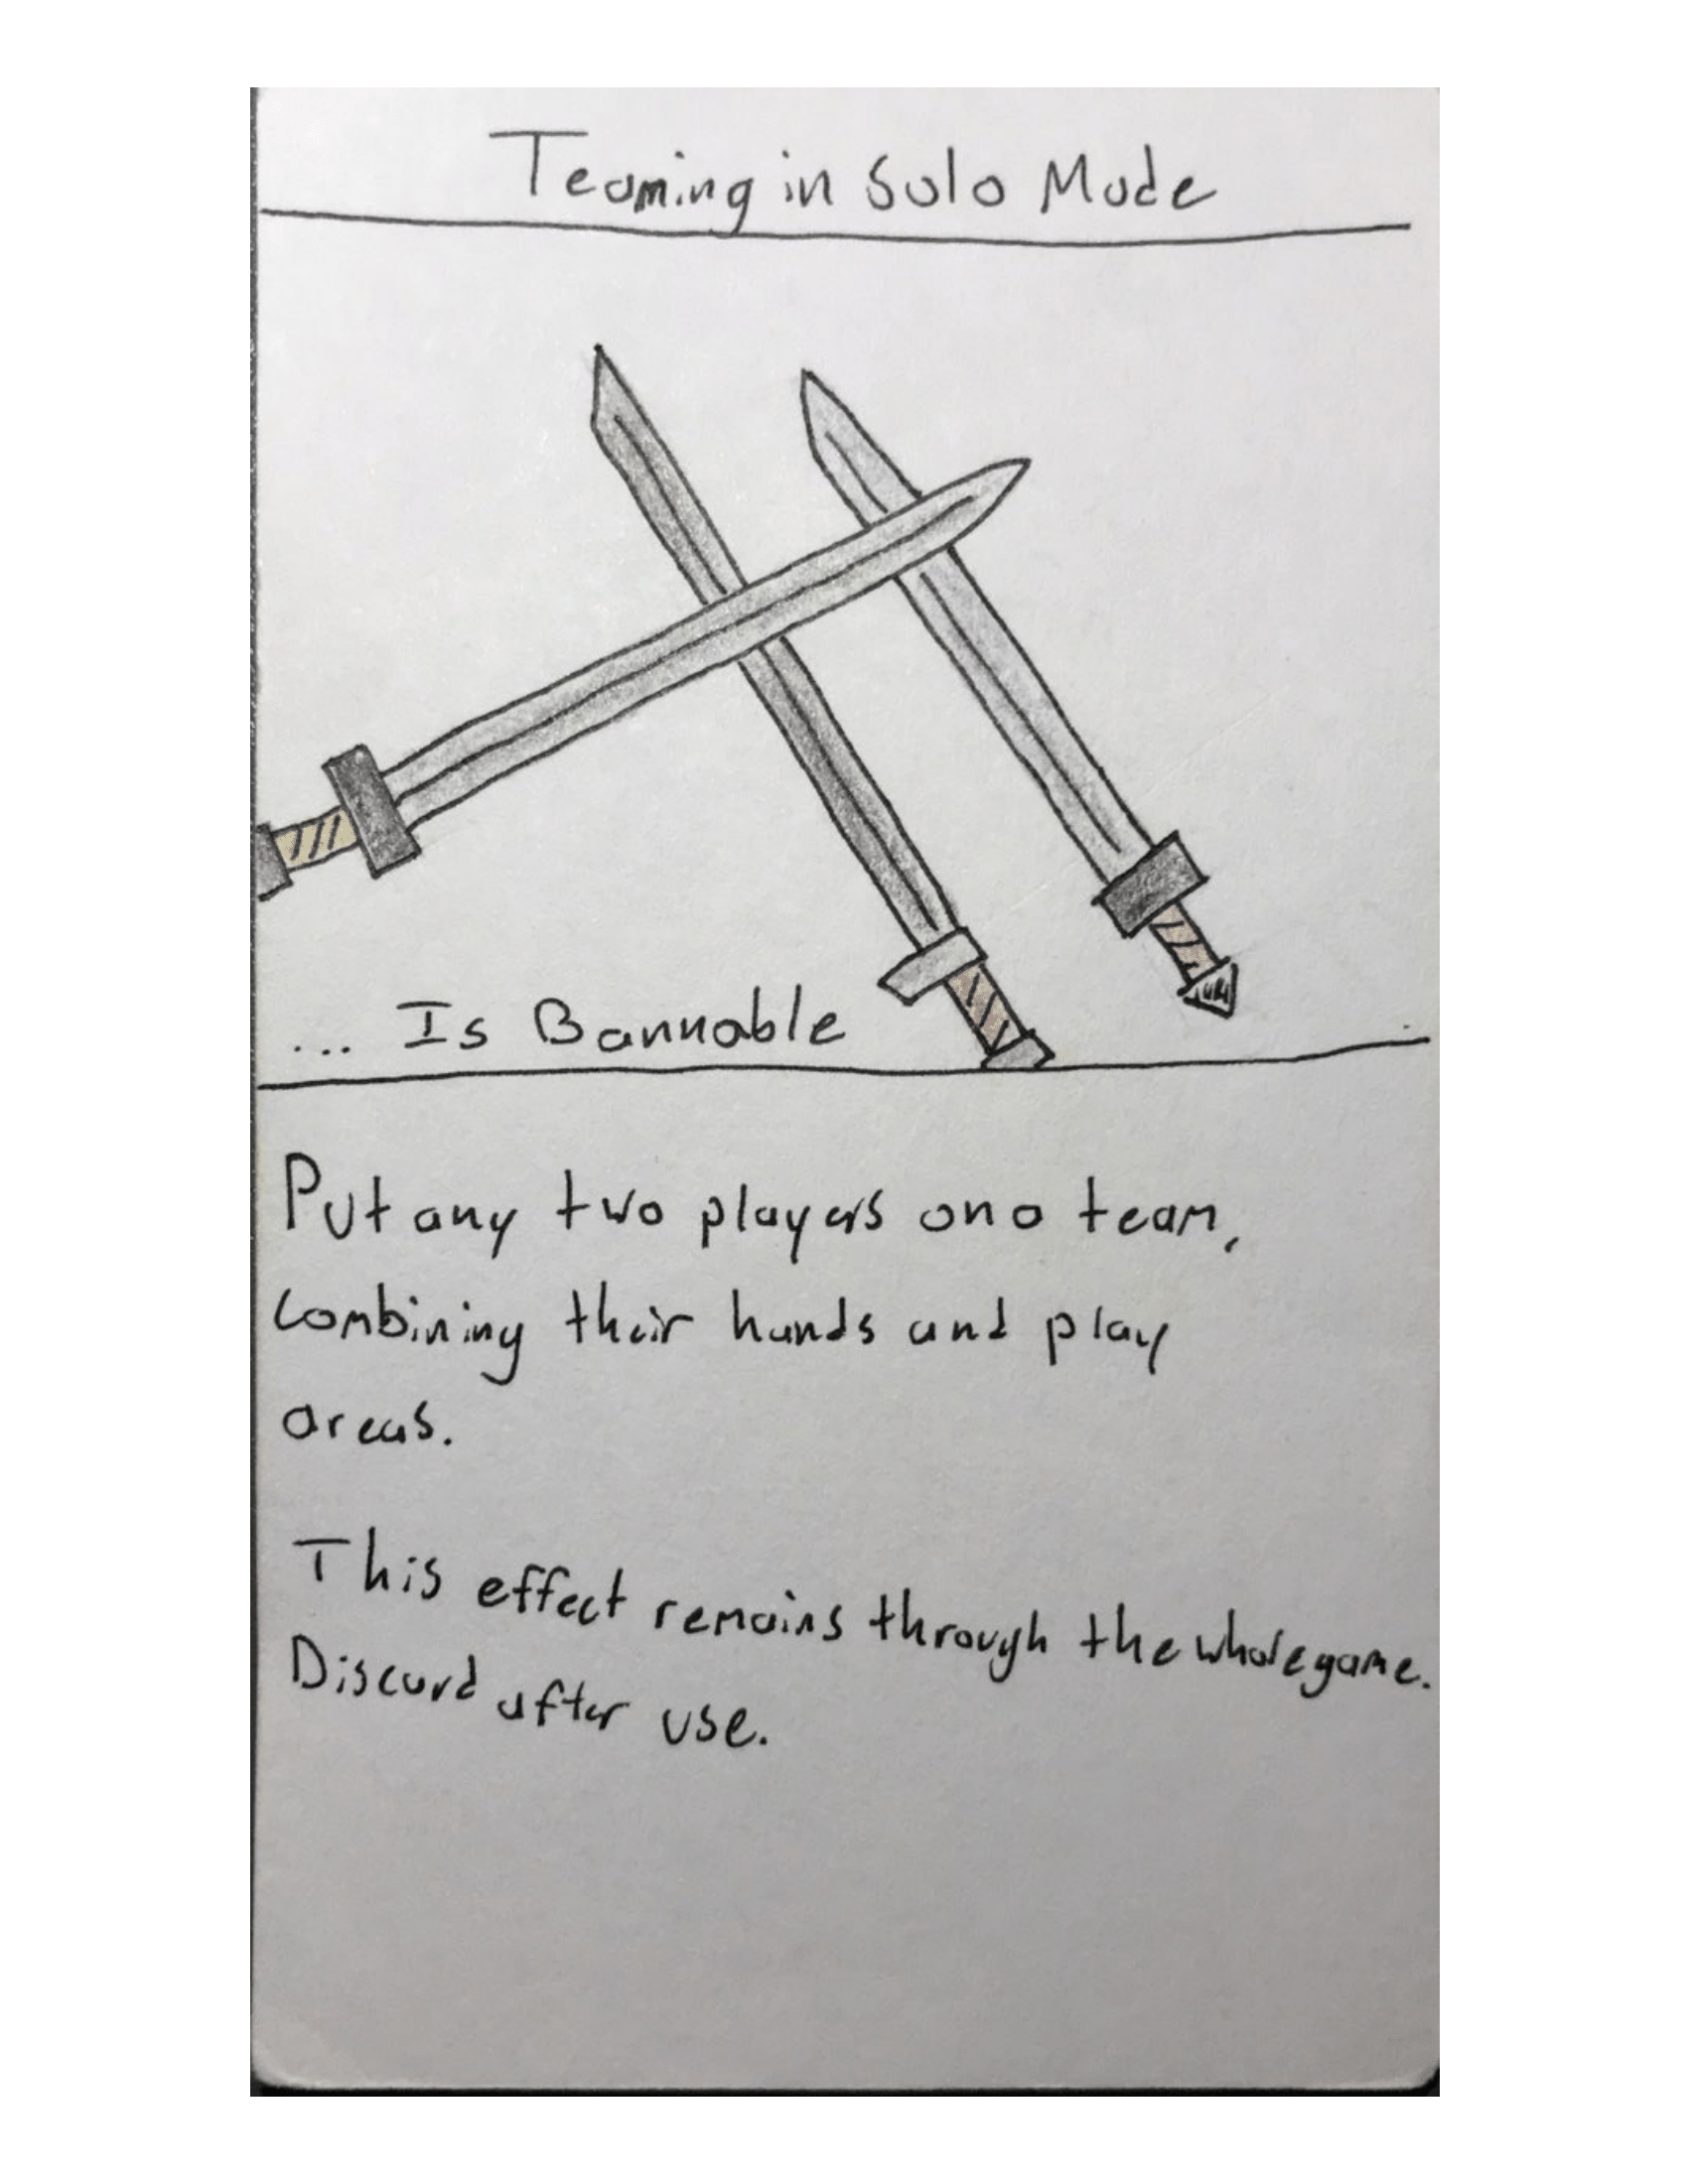 Teaming in Solo Mode
... Is Bannable
Put any two players on a team,
combining their hands and play
areas.
This effect remains through the whole game.
Discard after use.